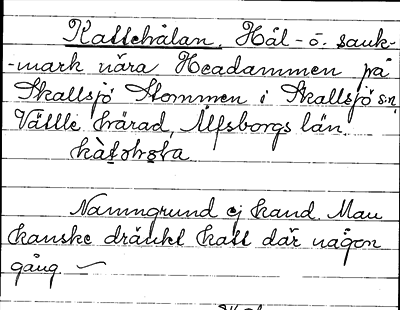 Kattehålan. Hål- o. sank-
-mark nära Headammen på
Skallsjö Stommen i Skallsjö sn,
Vättle härad, Älfsborgs län.

Namngrund ej känd. Man
kanske dränkt katt där någon
gång. —